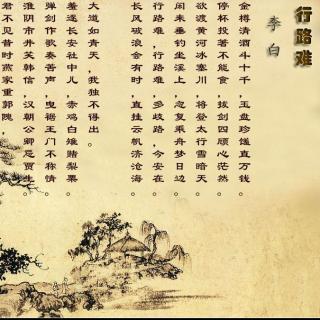 行路难
李白
金樽清酒斗十千，玉盘珍馐直万钱。
停杯投箸不能食，拔剑四顾心茫然。
欲渡黄河冰塞川，将登太行雪暗天。
闲来垂钓坐溪上，忽复乘舟梦日边。
行路难，行路难，多歧路，今安在。
长风破浪会有时，直挂云帆济沧海。
大道如青天，我独不得出。
羞逐长安社中儿，赤鸡白雉赌梨栗。
弹剑作歌奏苦声，曳裾王门不称情。
淮阴市井笑韩信，汉朝公卿忌贾生。
君不见昔时燕家重郭隗，